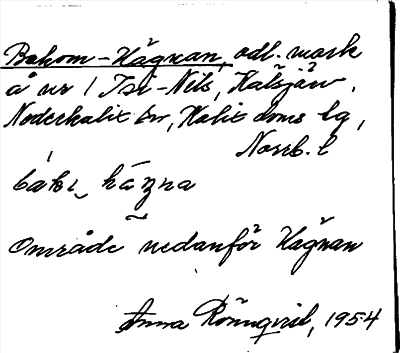 Bakom-Hägnan, odl. mark
å nr 1 Tor-Nils, Hälsjärv,
Nederkalix sn, Kalix doms lg,
Norrb. l
Område nedanför Hägnan
Anna Rönnqvist, 1954